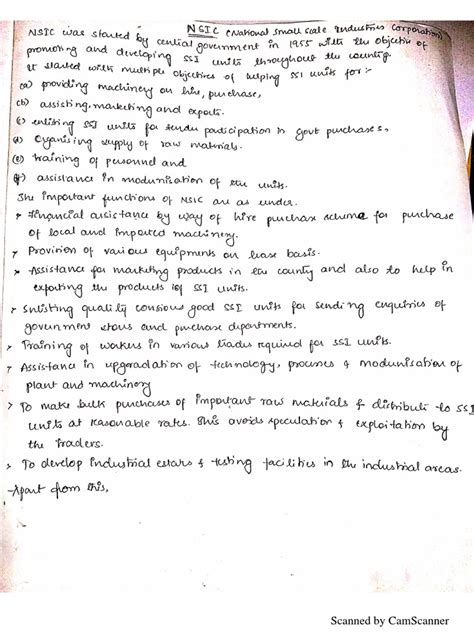 NSIC (National Small Scale Industries Corporation)
NSIC was started by central government in 1955 with the objective of
promoting and developing SSI units throughout the country
It started with multiple objectives of helping SSI units for :-
(a) providing machinery on hire, purchase,
(b) assisting, marketing and exports.
(c) enlisting SSI units for tender participation in Govt purchases,
(d) Organising supply of raw materials.
(e) training of personnel and
(f) assistance in modernisation of the units.
The important functions of NSIC are as under.
Financial assistance by way of hire purchase scheme for purchase
of local and imported machinery.
Provision of various equipments on lease basis.
Assistance for marketing products in the country and also to help in
exporting the products of SSI units.
Enlisting quality consious good SSI units for sending enquiries of
government stores and purchase departments.
Training of workers in various trades required for SSI units.
Assistance in upgradation of technology, processes & modernisation of
plant and machinery
To make bulk purchases of important raw materials & distribute to SSI
units at reasonable rates. This avoids speculation & exploitation by
the traders.
To develop industrial estates & testing facilities in the industrial areas.
Apart from this,
Scanned by CamScanner